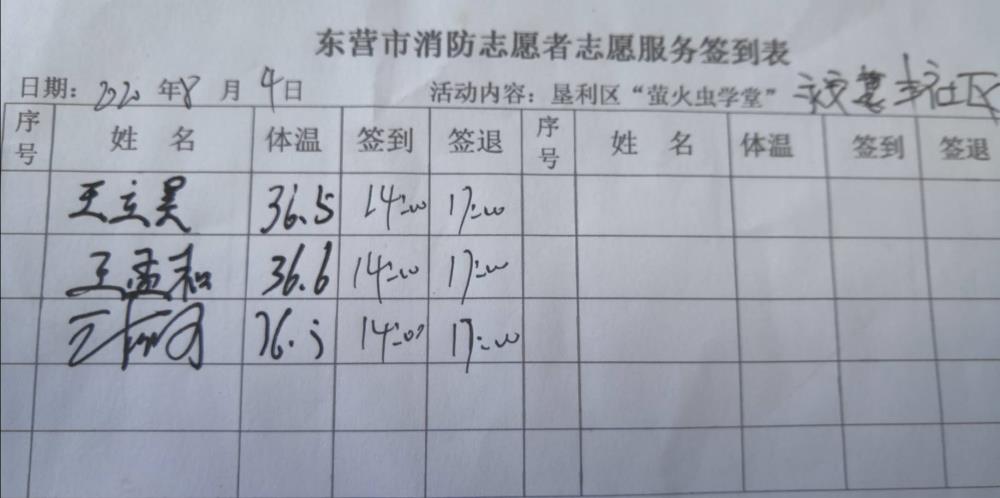 东营市消防志愿者志愿服务签到表
日期：2020年8月4日 活动内容：垦利区“萤火虫学堂” 社区
序号 姓名 体温 签到 签退 序号 姓名 体温 签到 签退
王立昊 36.5 14:00 17:00
王孟和 36.6 14:00 17:00
王 36.5 14:00 17:00